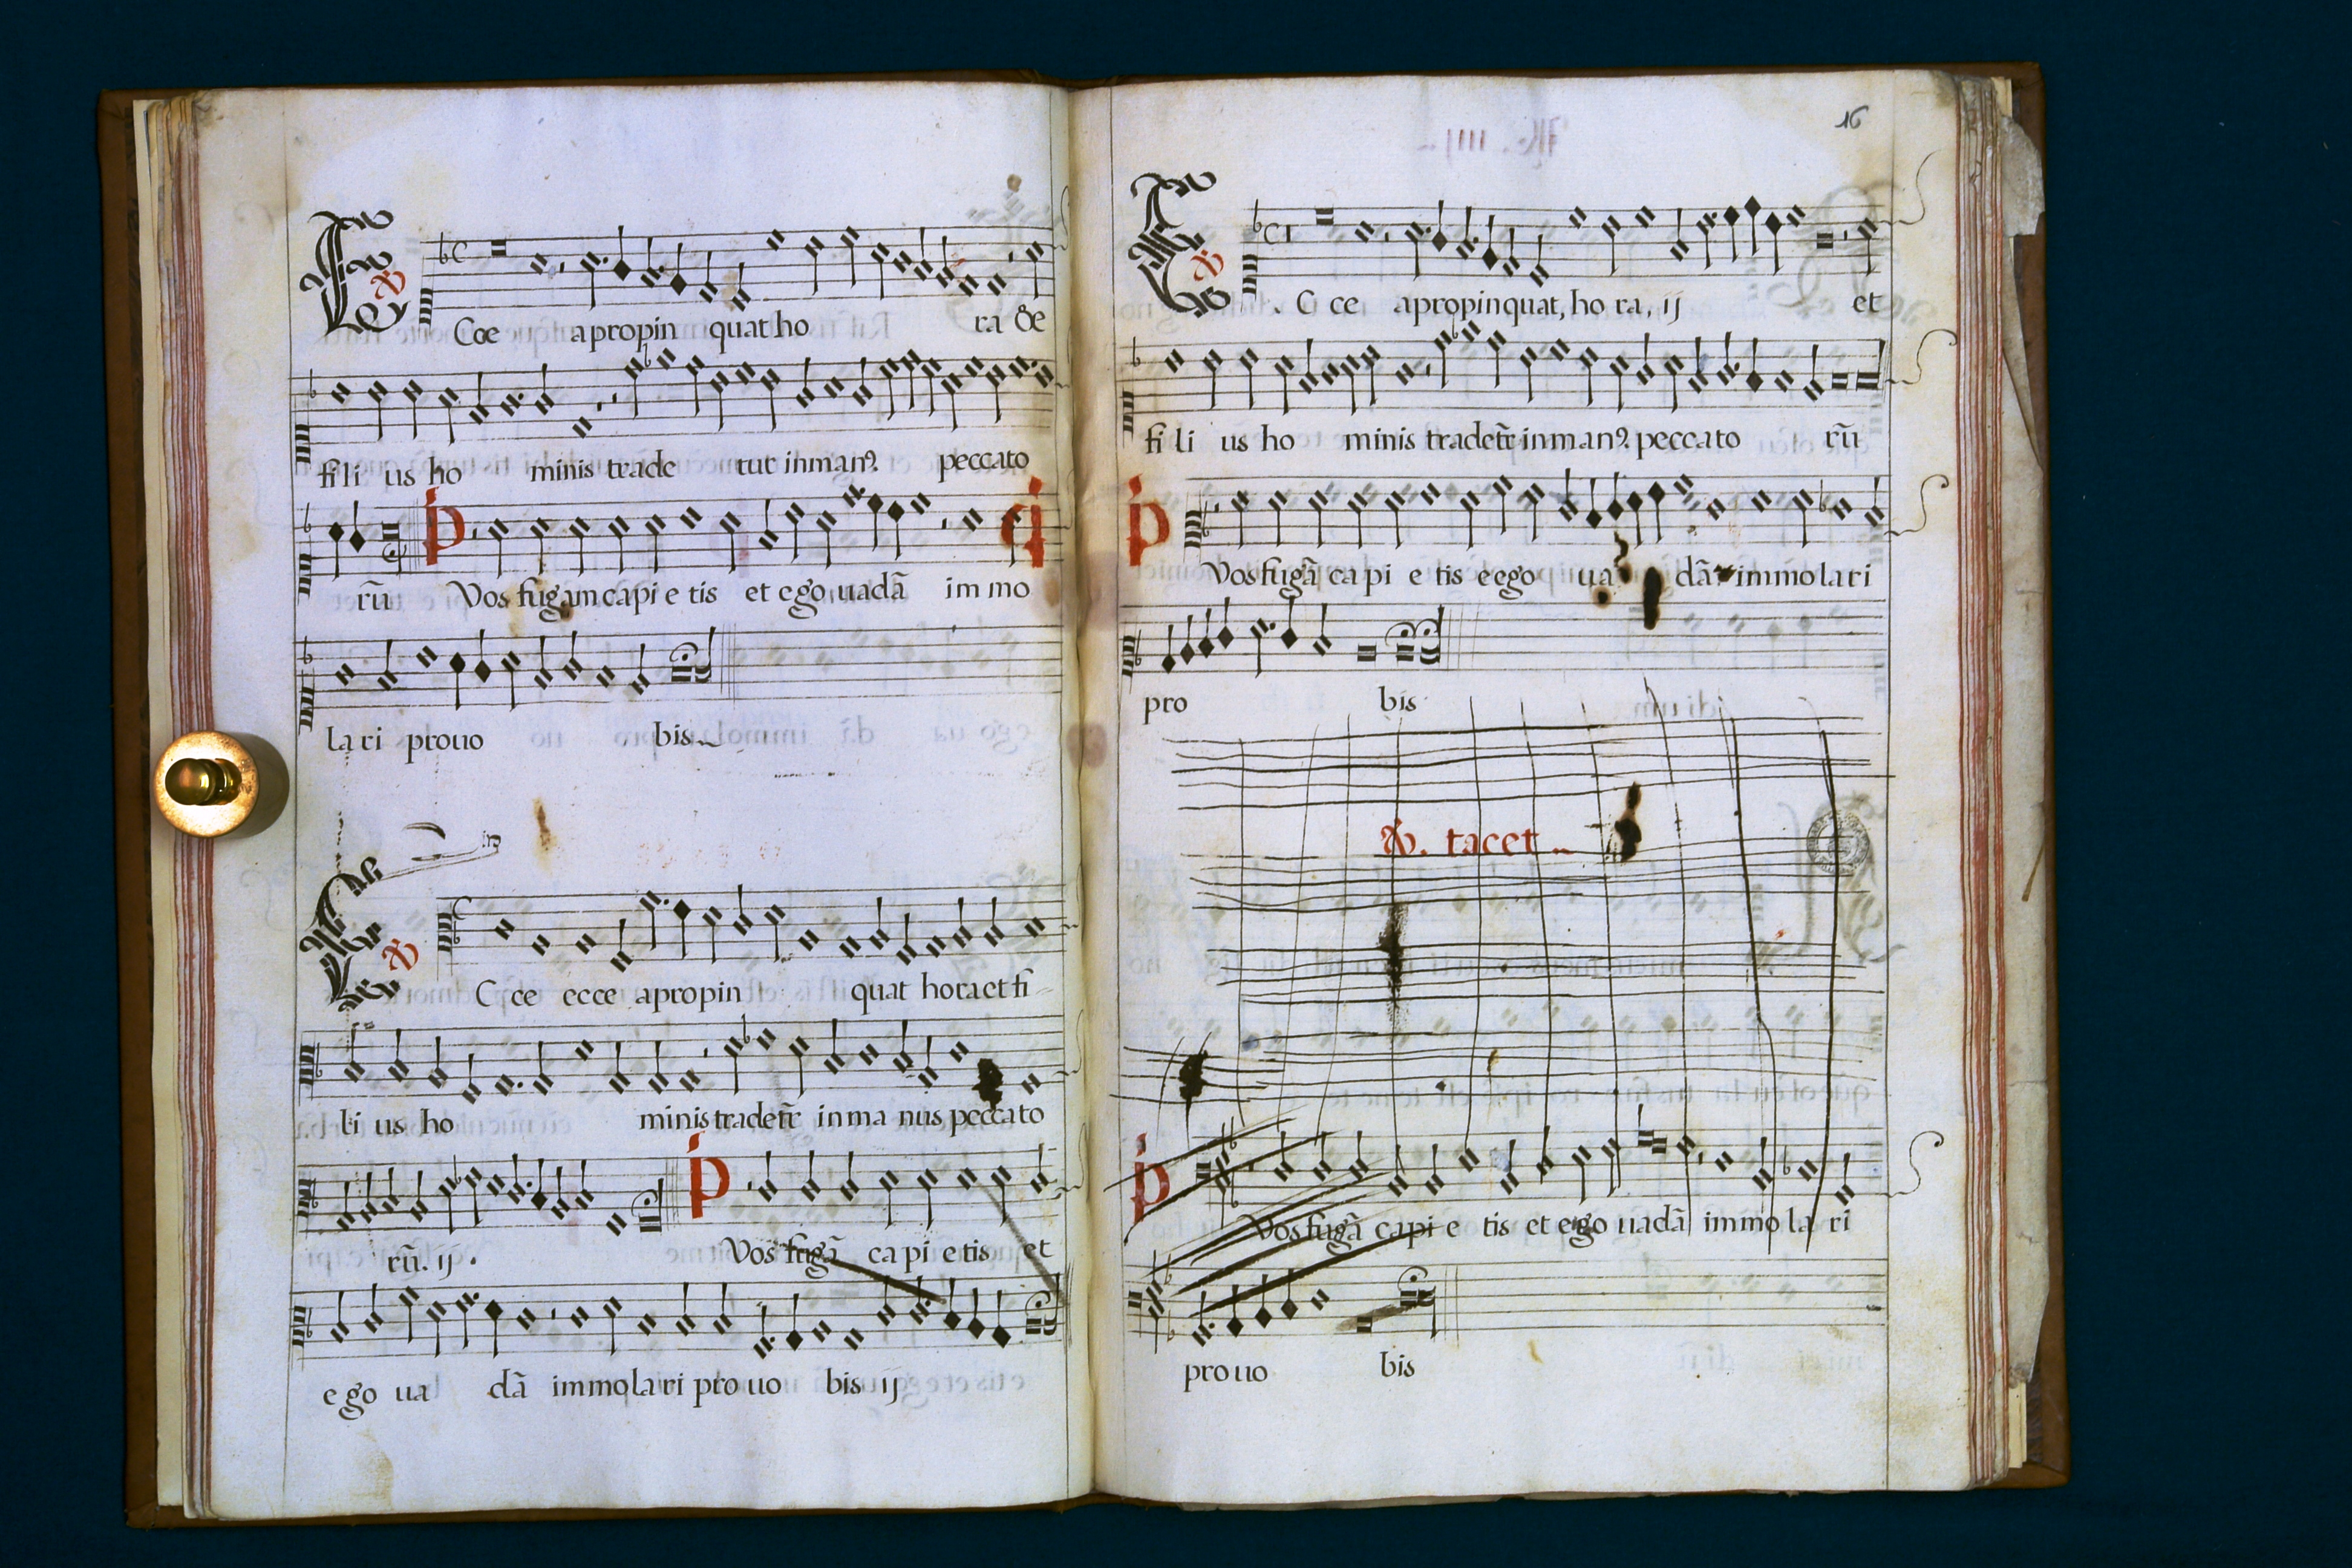 Ecce apropin quat ho ra &e
fi li us ho minis trade tur in manꝰ. peccato
rū P Vos fugam capi e tis et ego uadā im mo
la ri prouo bis
Ecce ecce apropin quat hora et fi
li us ho minis tradet̃r in ma nus peccato
rū. ij. P Vos fugā ca pi e tis et
ego ua dā immolari pro uo bis ij
16
Ecce apropinquat, ho ra, ij et
fi li us ho minis tradet̃r in manꝰ. peccato rū
P Vos fugā ca pi e tis e ego ua dā immolari
pro bis
tacet
P Vos fugā capi e tis et ego uadā immo la ri
pro uo bis